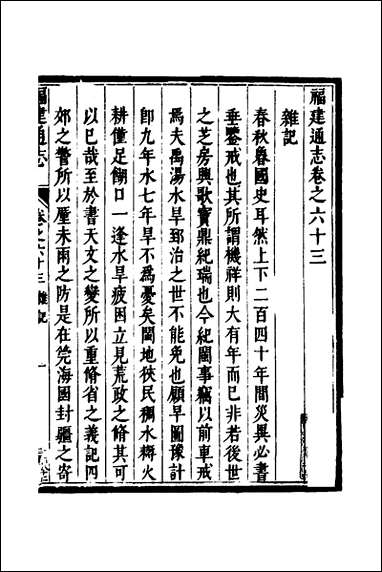 福建通志卷之六十三
雜記
春秋魯國史耳然上下二百四十年間災異必書
垂鑒戒也其所謂禨祥則大有年而已非若後世
之芝房興歌寶鼎紀瑞也今紀閩事竊以前車戒
焉夫禹湯水旱郅治之世不能免也顧早圖豫計
卽九年水七年旱不爲憂矣閩地狹民稠水耨火
耕僅足餬口一逢水旱疲困立見荒政之脩其可
以已哉至於書天文之變所以重脩省之義記四
郊之警所以厪未雨之防是在筦海國封疆之寄
福建通志
卷之六十三 雜記
一